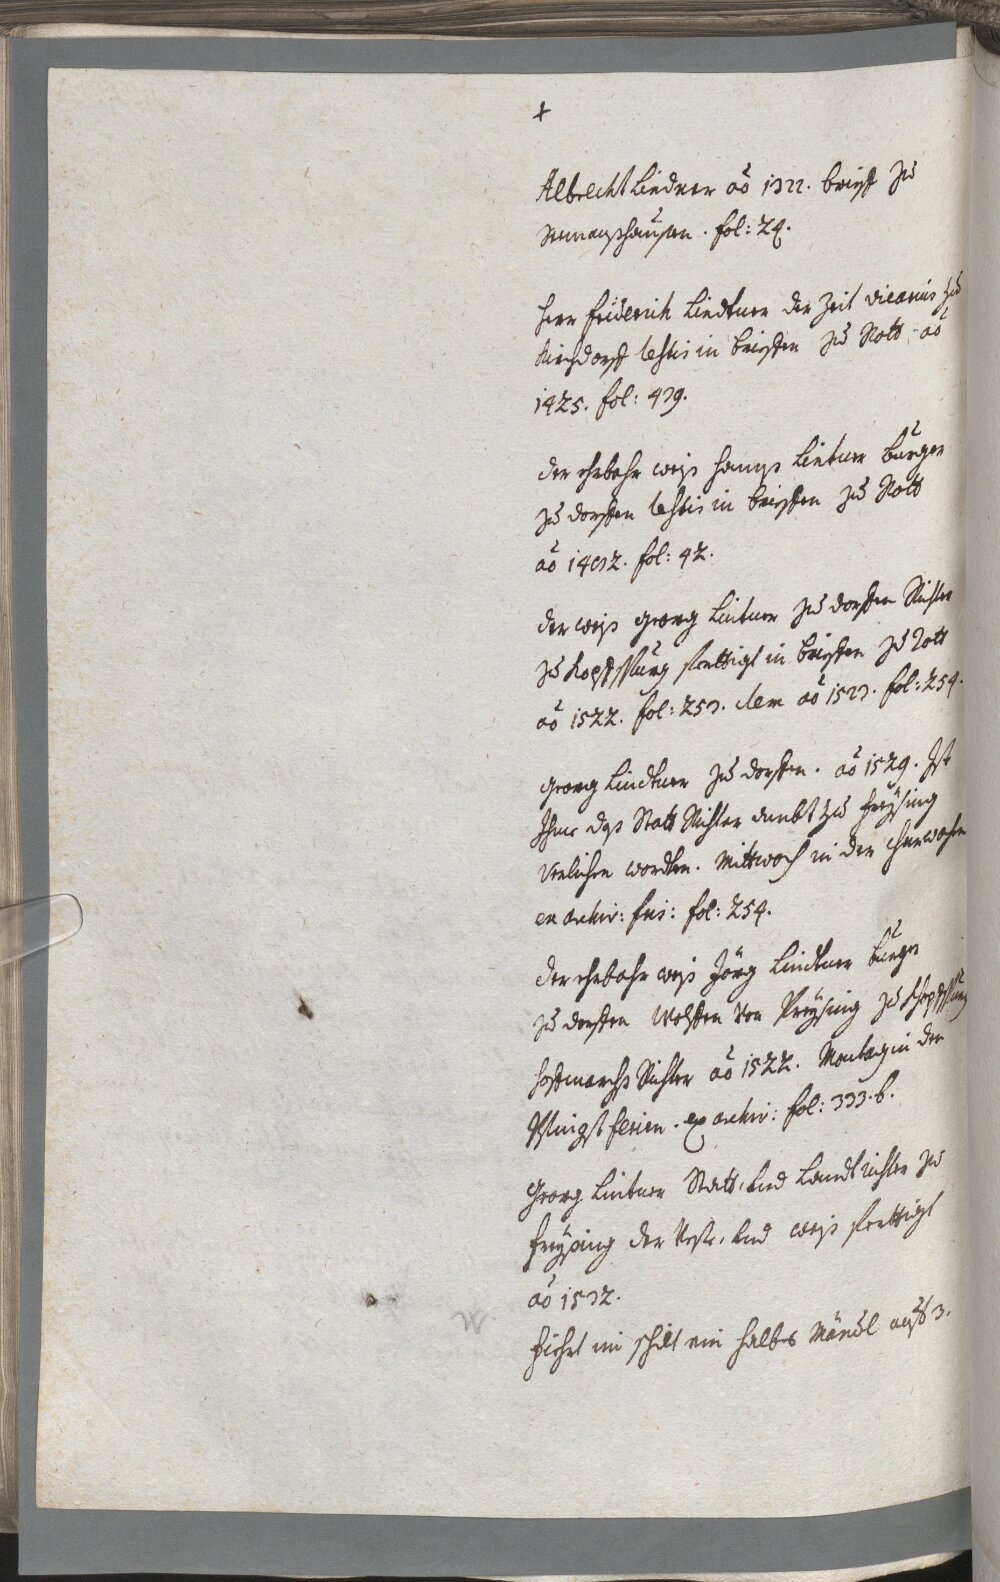 +
Albrecht Liedner aõ 1322. brieff zu
Remangßhausen. fol: 24.
Herr Friderich Liedtner der Zeit vicarius zu
Kirchdorff testis in brieffen zu Rott aõ
1425. fol: 439.
der ehrbahr weiß Hannß Lintner burger
zu dorffen testis in brieffen zu Rott
aõ 1492. fol: 42.
der weiß Georg Lintner zu dorffen Richter
zu Kopffsburg sertigt in brieffen zu Rott
aõ 1522. fol: 253. Item aõ 1523. fol: 254.
Georg Lindtner zu dorffen. aõ 1529. Ist
Ihme daß Statt Richter ambt zu Freysing
verlichen worden. Mittwoch in der Charwochen
ex archiv: fris: fol: 254.
der ehrbahr weiß Jörg Lindtner burger
zu dorffen Wolffen von Preysing zu Khopffsburg
hoffmarchß Richter aõ 1522. Montag in den
Pfingst ferien. ex archiv: fol: 333. b.
Georg Lintner Statt- und Landtrichter zu
Freysing der Vest- und weiß ferttigt
aõ 1532.
Fiehrt im schilt ein halbes Mändl auff 3.